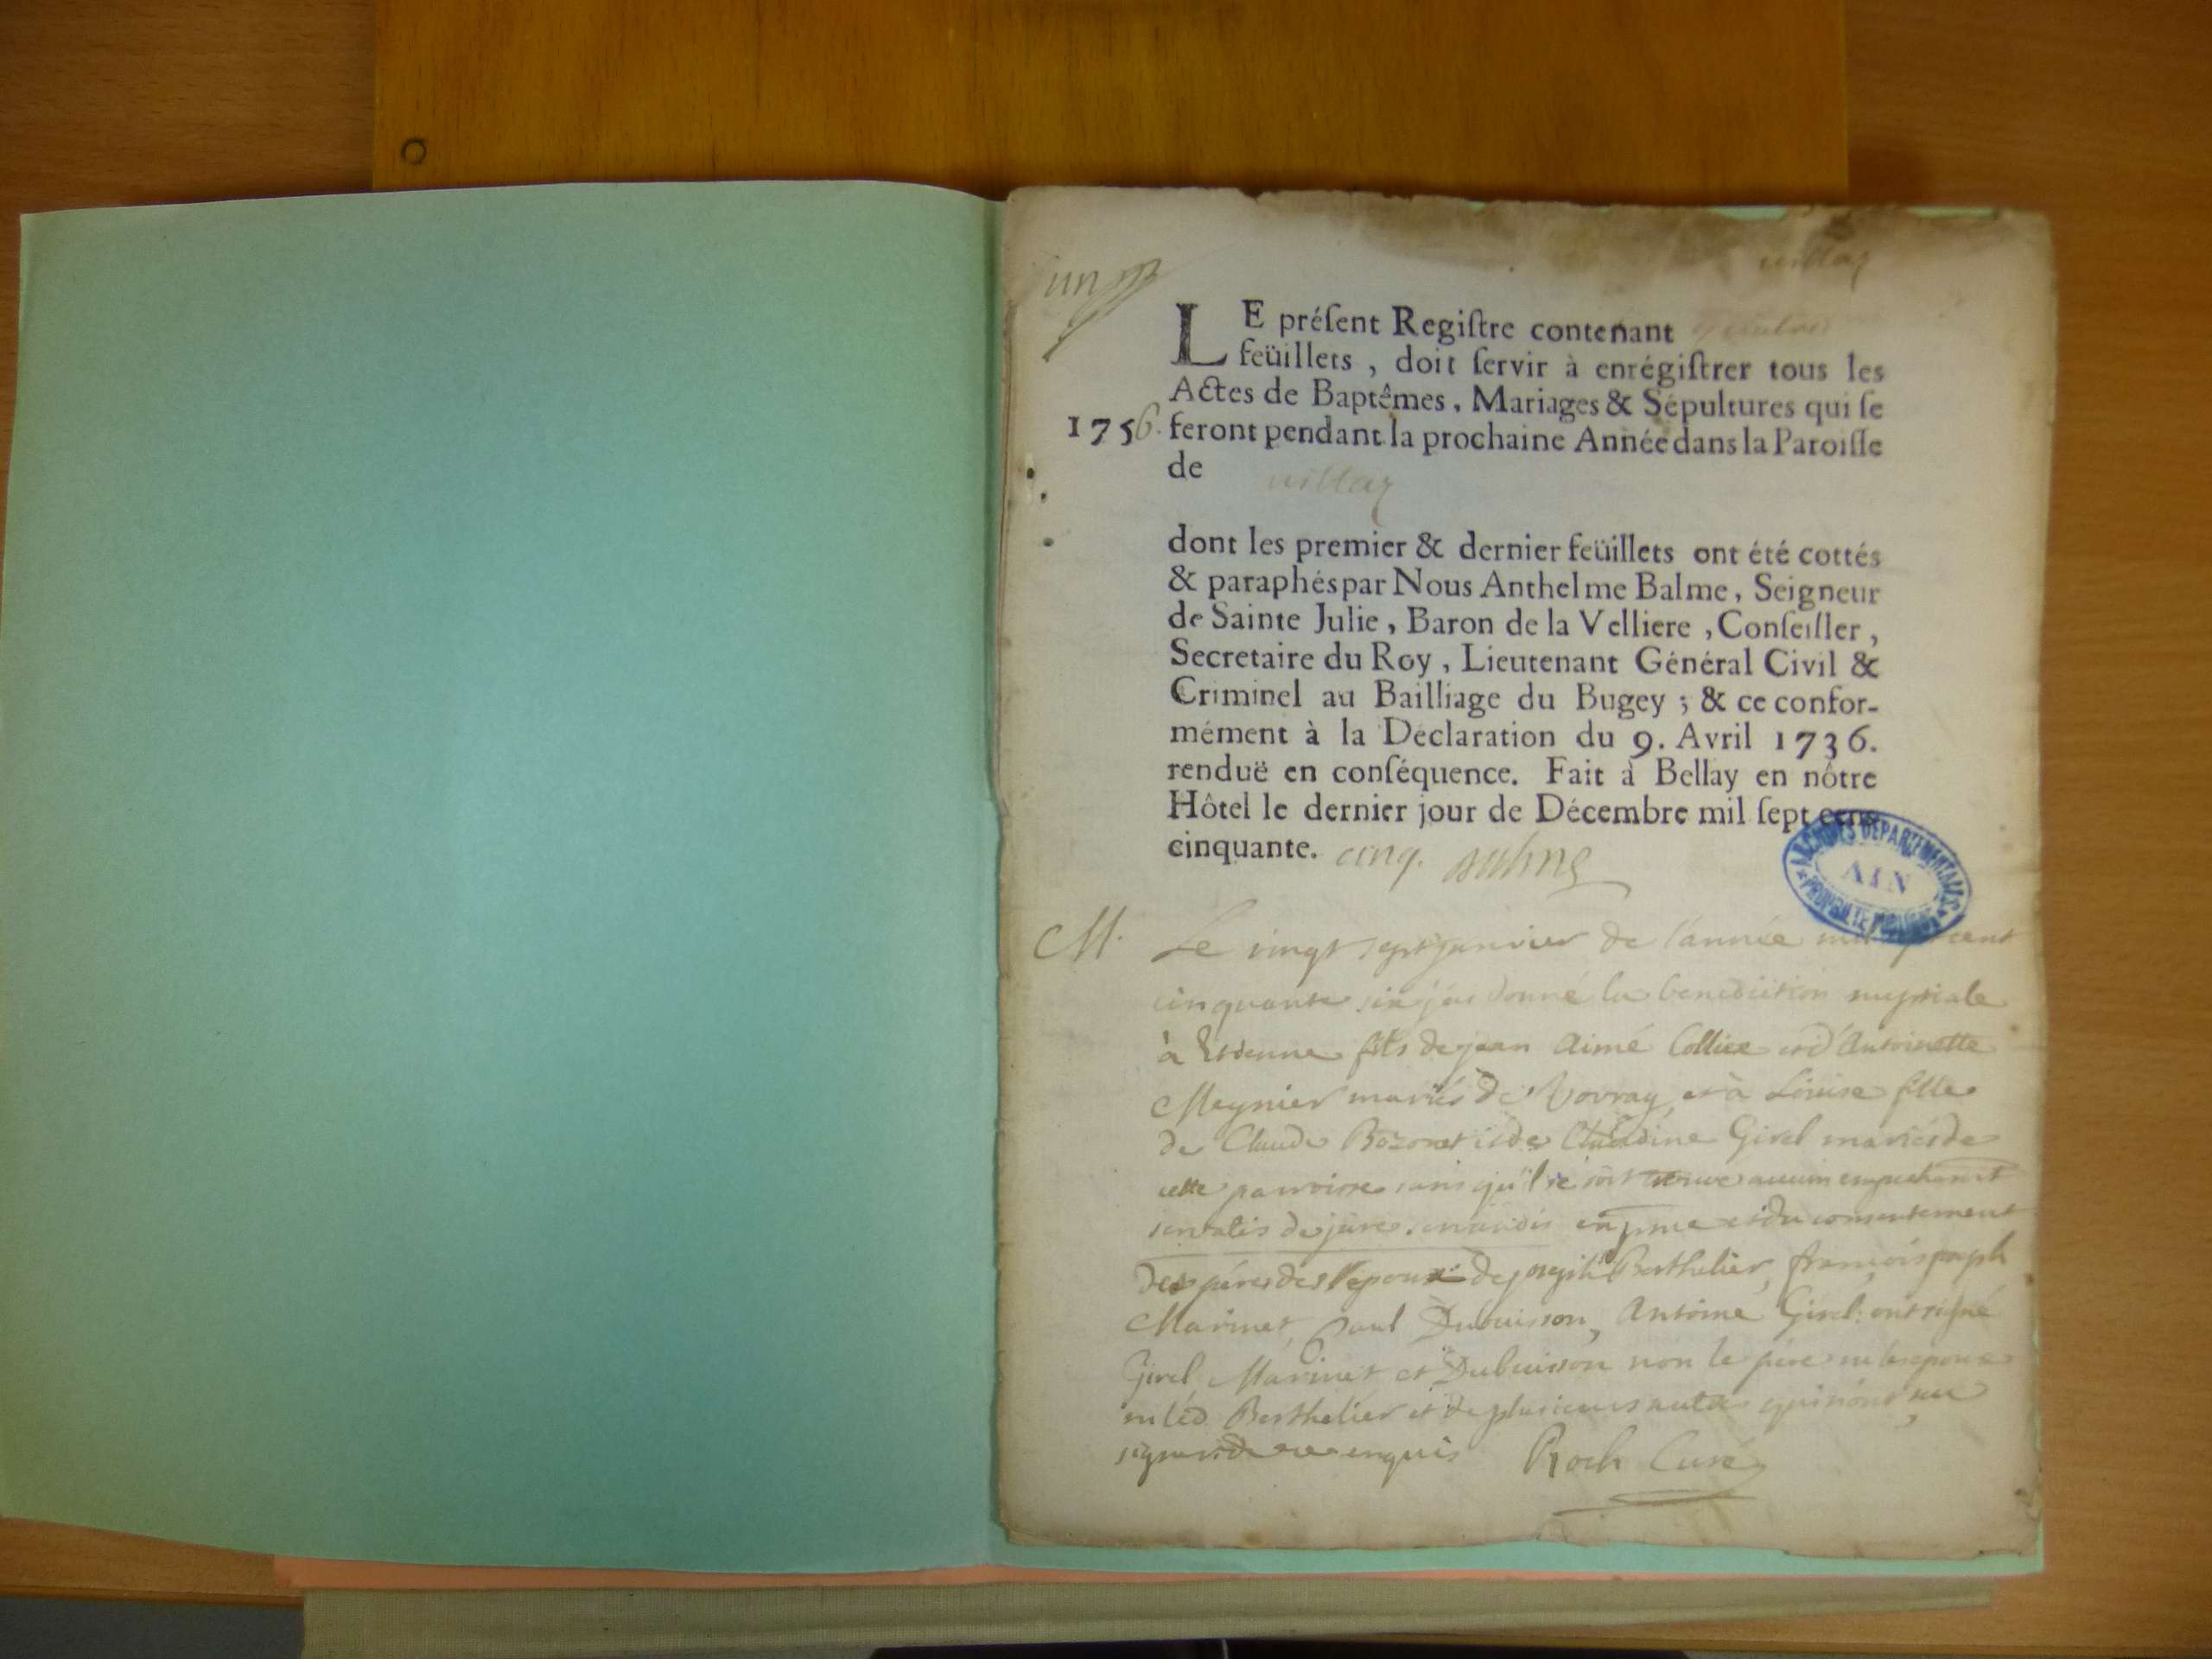 un
villaz
LE préſent Regiſtre contenant quatre
feüillets, doit ſervir à enrégiſtrer tous les
Actes de Baptêmes, Mariages & Sépultures qui ſe
1756. feront pendant la prochaine Année dans la Paroiſſe
de villaz
dont les premier & dernier feüillets ont été cottés
& paraphés par Nous Anthelme Balme, Seigneur
de Sainte Julie, Baron de la Velliere, Conſeiller,
Secretaire du Roy, Lieutenant Général Civil &
Criminel au Bailliage du Bugey; & ce confor-
mément à la Déclaration du 9. Avril 1736.
renduë en conſéquence. Fait à Bellay en nôtre
Hôtel le dernier jour de Décembre mil ſept cens
cinquante. cinq.
ARCHIVES DEPARTEMENTALES
AIN
PROPRIETE PUBLIQUE
M. Le vingt sept janvier de l'année mil sept cent
cinquante six j'ai donné la benediction nuptiale
à Etienne fils de jean Aimé Collier et d'Antoinette
Meynier mariés de Vovray, et à Louise fille
de Claude Bozonet et de Claudine Girel mariés de
cette parroisse sans qu'il se soit trouvé aucun empechement
des péres des epoux de joseph Berthelier, françois joseph
Marinet, paul Dubuisson, Antoine Girel. ont signé
Girel Marinet et Dubuisson non le pére ni les epoux
ni led Berthelier et de plusieurs autres qui n'ont sçu
signer de ce enquis Roch Curé